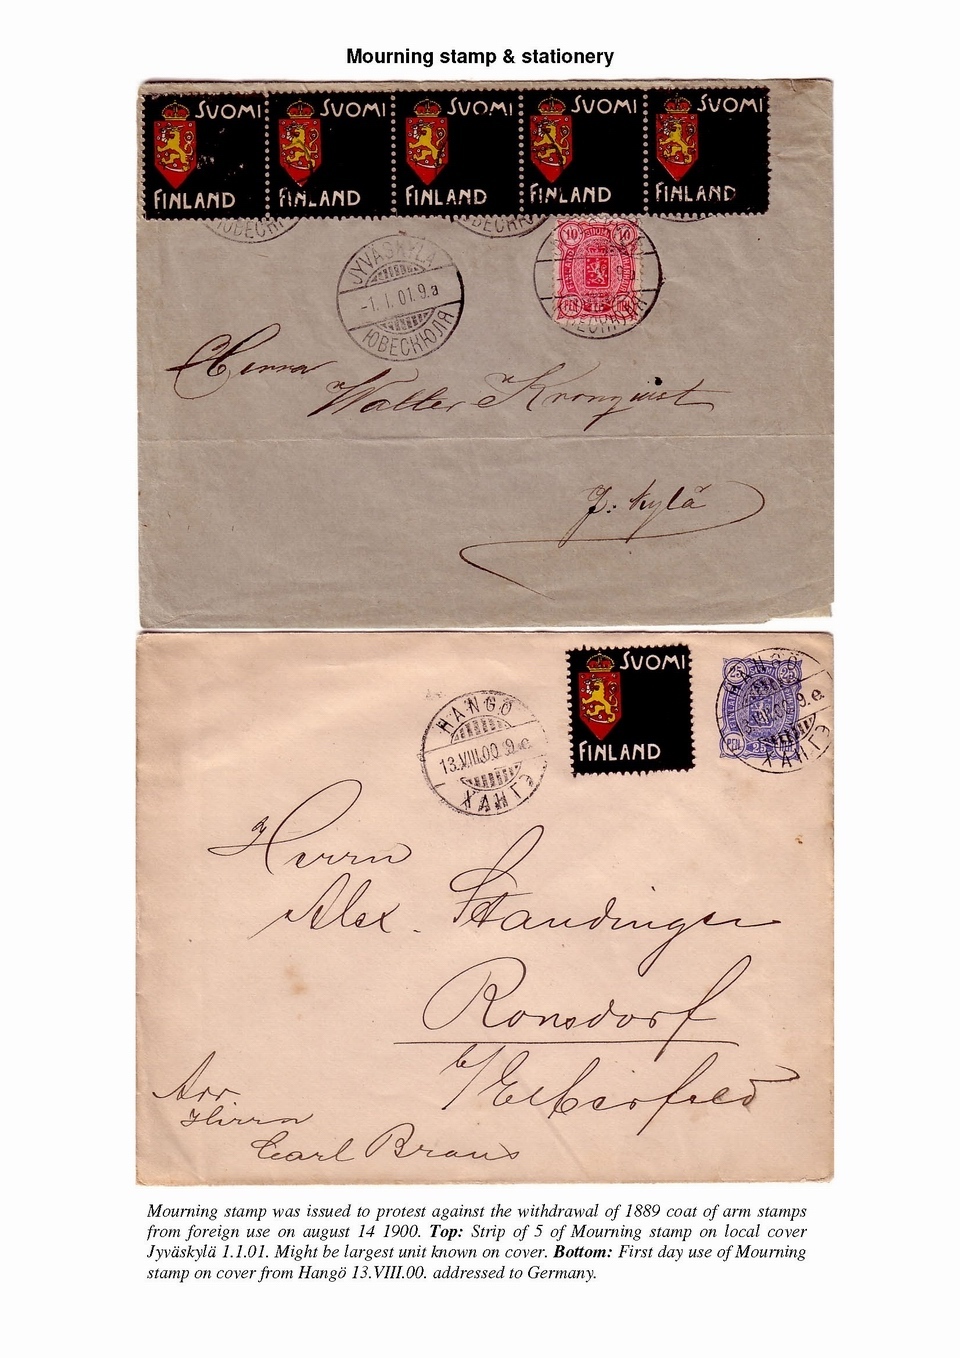 Mourning stamp & stationery
SUOMI SUOMI SUOMI SUOMI SUOMI
FINLAND FINLAND FINLAND FINLAND FINLAND
JYVÄSKYLÄ
-1.I.01.9.a
ЮВЕСКЮЛЯ
10 SUOMI 10
FINLAND
PEN 10 ПЕН
Herra
Walter Kronqvist
J:kylä
SUOMI
FINLAND
HANGÖ
13.VIII.00.9.e
ХАНГЭ
25 25
FINLAND
PEN 25
HANGÖ
13.VIII.00.9.e
ХАНГЭ
Herrn
Alex. Staudinger
Ronsdorf
b/Elberfeld
Adr.
Herrn
Carl Braus
Mourning stamp was issued to protest against the withdrawal of 1889 coat of arm stamps
from foreign use on august 14 1900. Top: Strip of 5 of Mourning stamp on local cover
Jyväskylä 1.1.01. Might be largest unit known on cover. Bottom: First day use of Mourning
stamp on cover from Hangö 13.VIII.00. addressed to Germany.